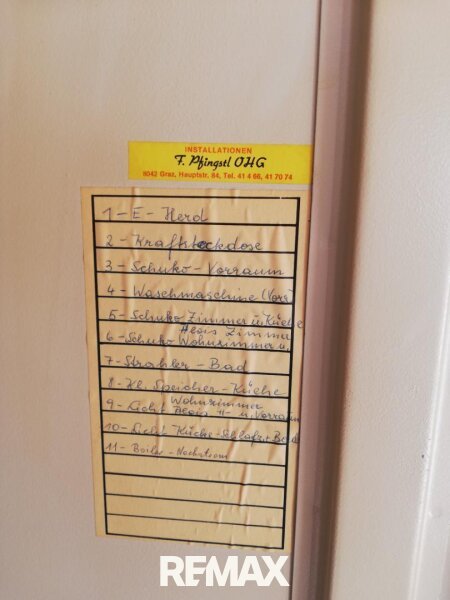 INSTALLATIONEN
F. Pfingstl OHG
8042 Graz, Hauptstr. 84, Tel. 41 4 66, 41 70 74
1 - E - Herd
2 - Kraftsteckdose
3 - Schuko - Vorraum
4 - Waschmaschine (Vorr)
5 - Schuko Zimmer u. Küche
Alois Zimmer
6 - Schuko Wohnzimmer u.
7 - Strahler - Bad
8 - Kl. Speicher - Küche
Wohnzimmer
9 - Licht Alois u. Vorraum
10 - Licht Küche - Schlafz + Bad
11 - Boiler - Nachstrom
REMAX